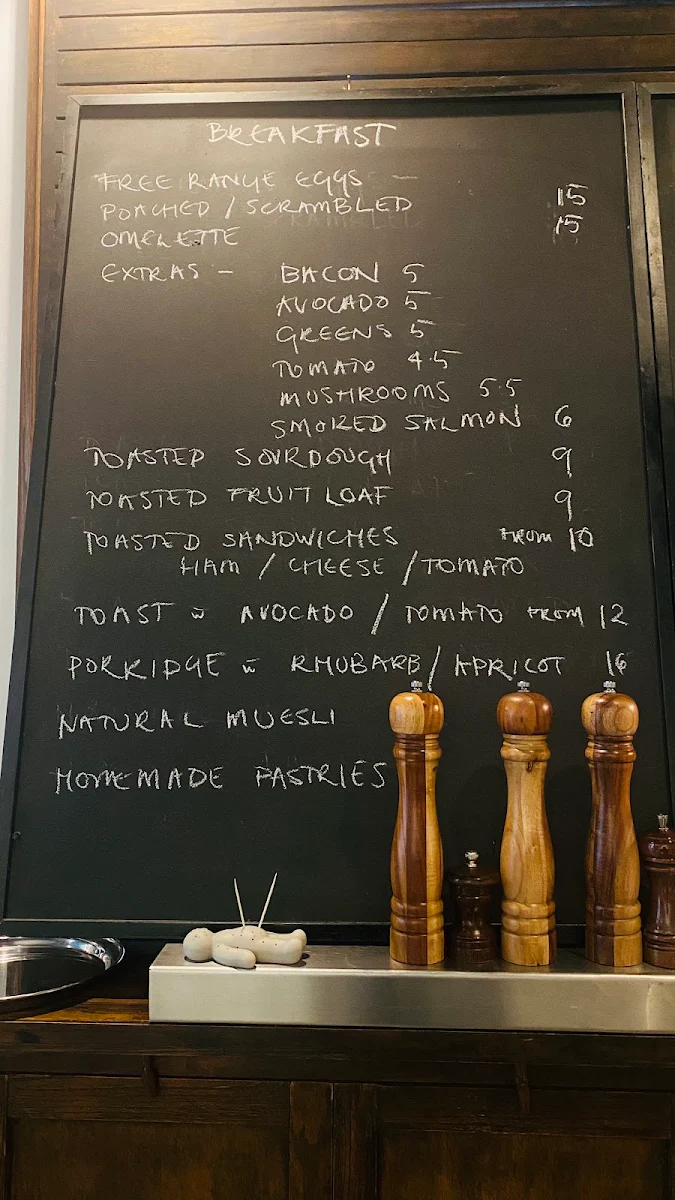 BREAKFAST
FREE RANGE EGGS —
POACHED / SCRAMBLED 15
OMELETTE 15
EXTRAS — BACON 5
AVOCADO 5
GREENS 5
TOMATO 4.5
MUSHROOMS 5.5
SMOKED SALMON 6
TOASTED SOURDOUGH 9
TOASTED FRUIT LOAF 9
TOASTED SANDWICHES FROM 10
HAM / CHEESE / TOMATO
TOAST w AVOCADO / TOMATO FROM 12
PORRIDGE w RHUBARB / APRICOT 16
NATURAL MUESLI
HOMEMADE PASTRIES